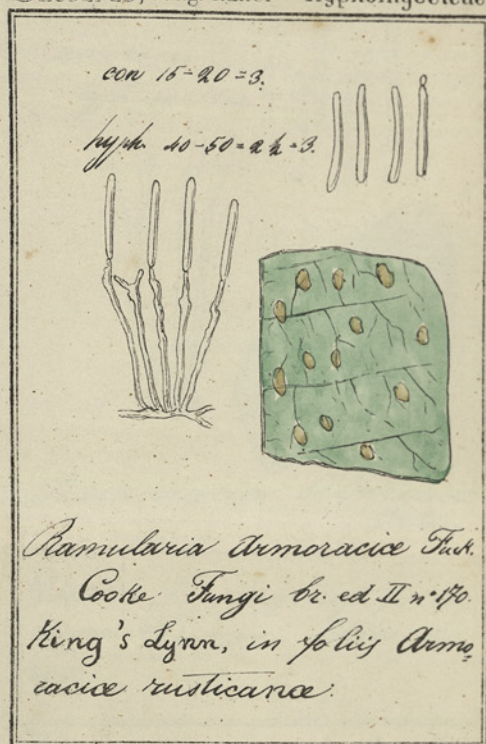 con 15=20=3.
hyph. 40-50=2½=3.
Ramularia Armoraciæ Fuck.
Cooke Fungi br. ed II n° 170.
King's Lynn, in foliis Armo,
raciæ rusticanæ.